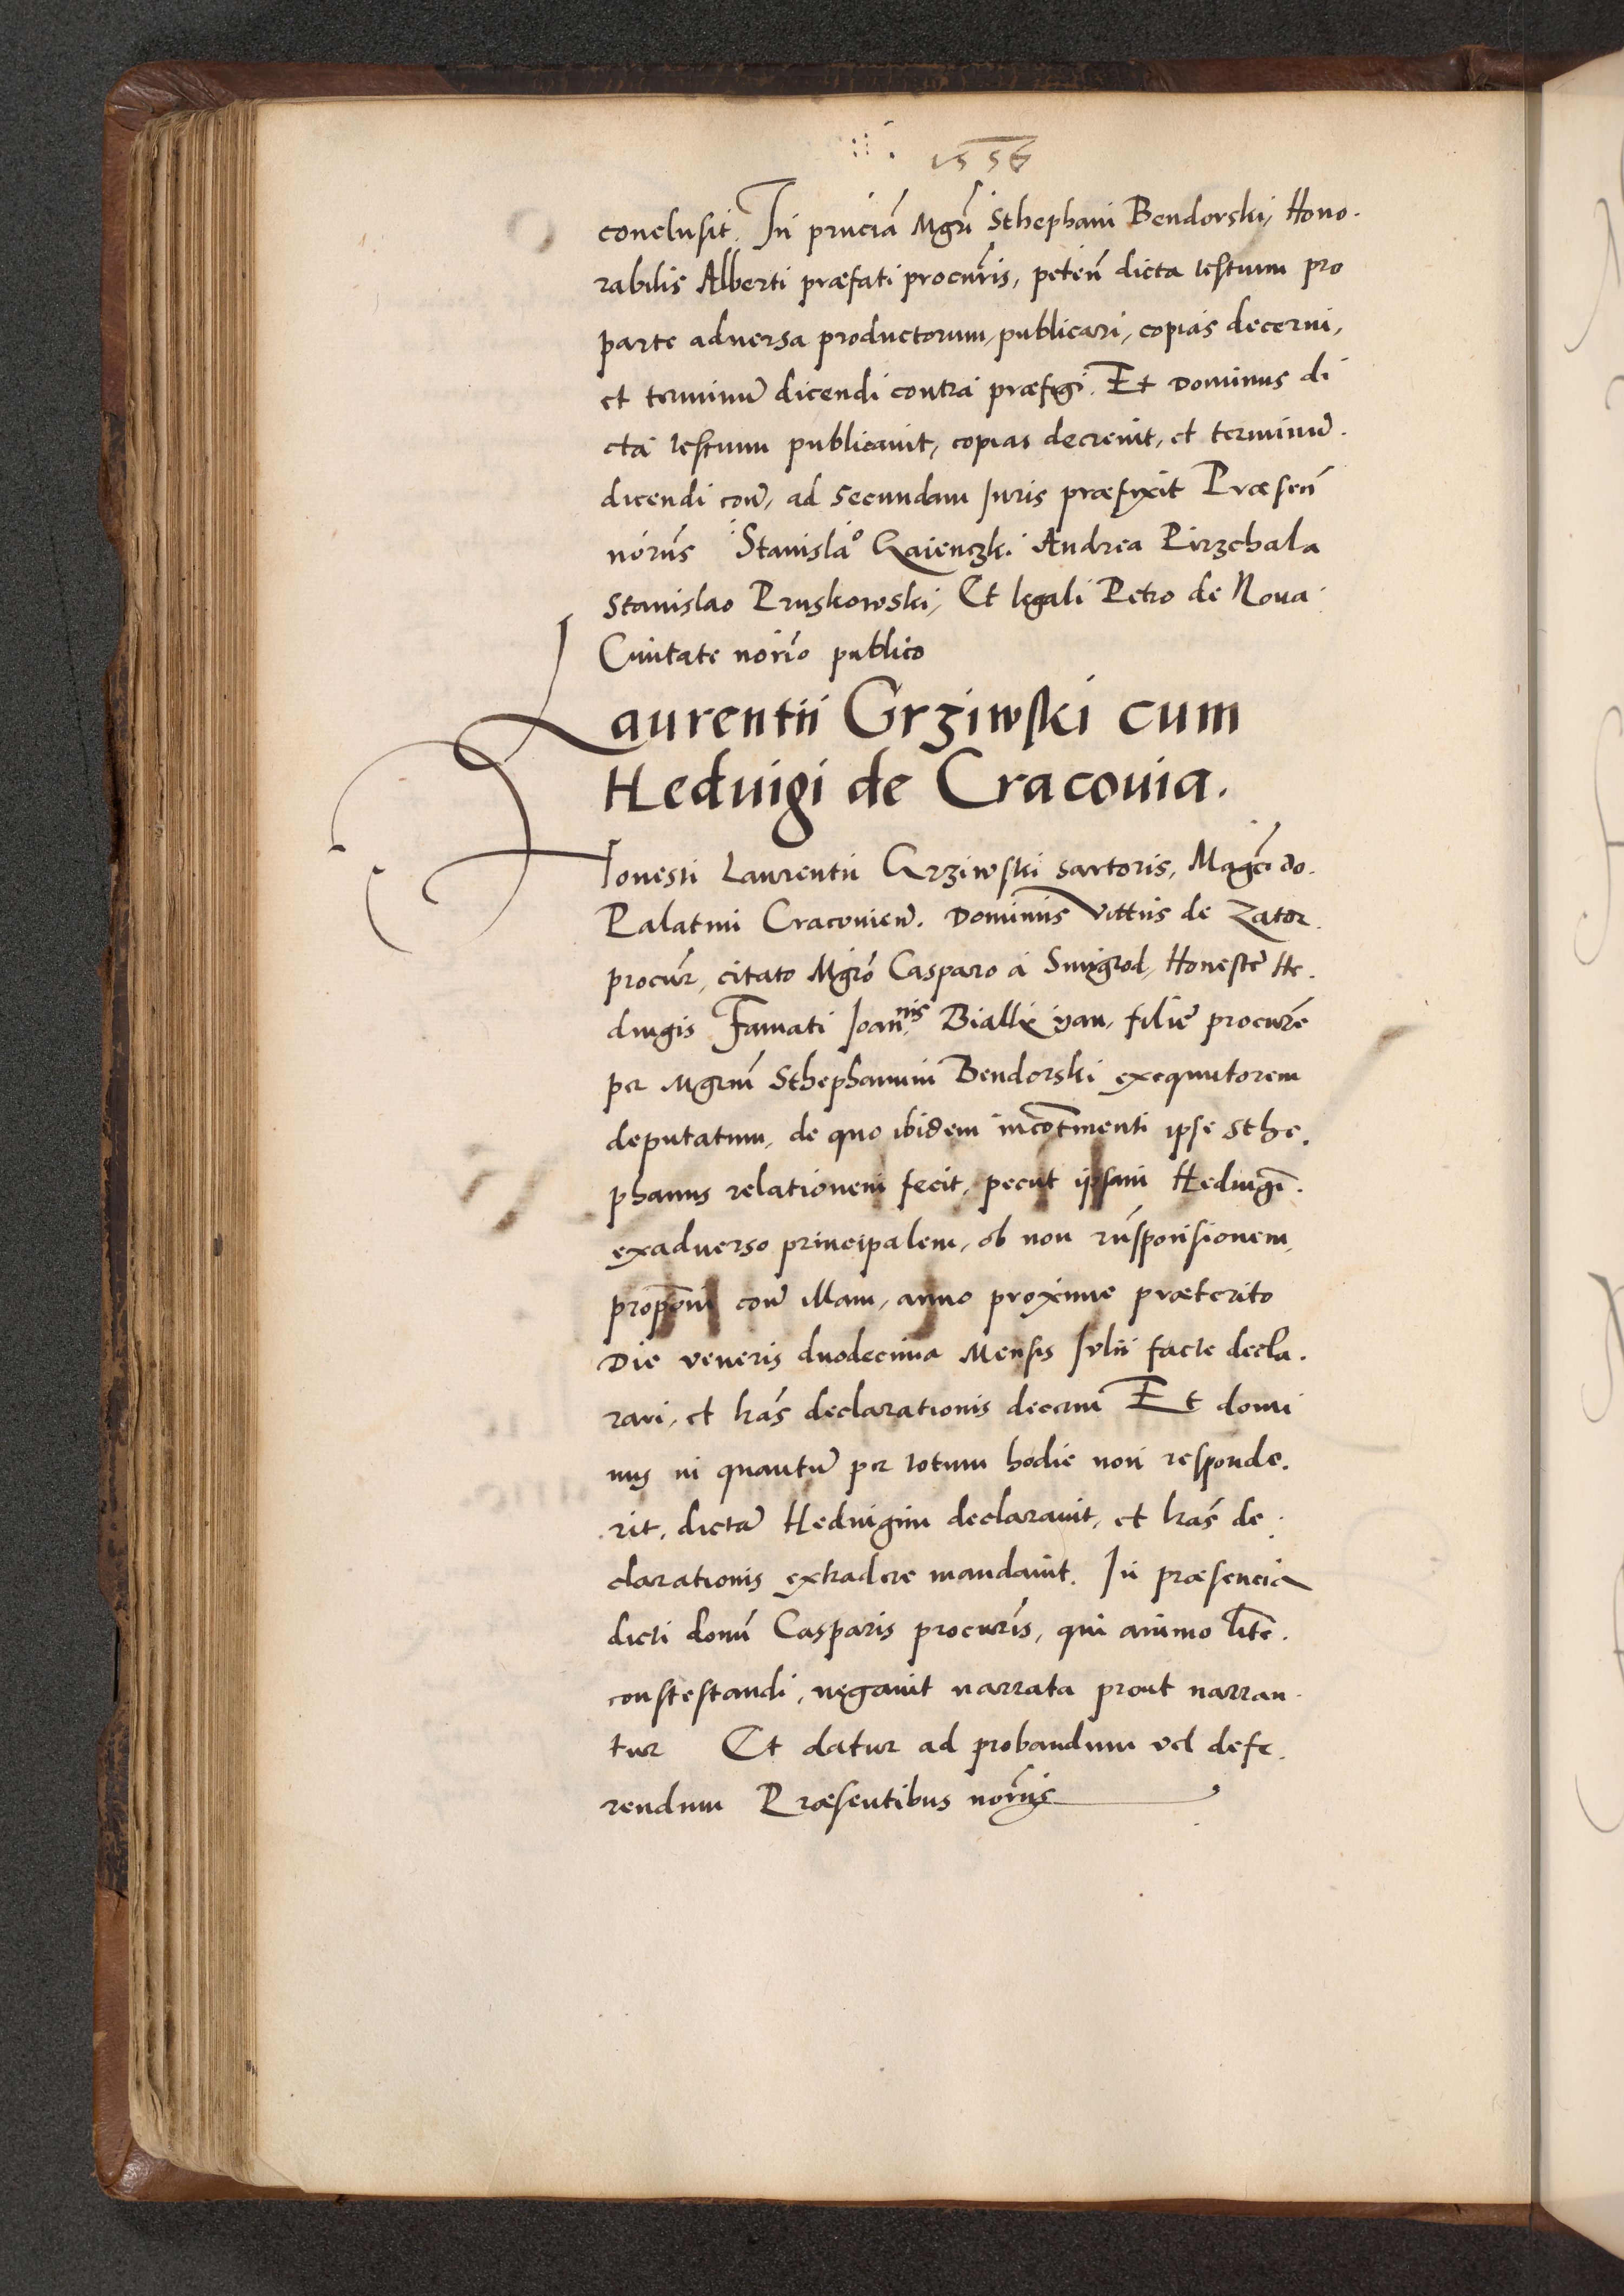 1556
conclusit. In pñciã Mgri Sthephani Bendorski, Hono
rabilis Alberti præfati procuris, peteñ dicta testium pro
parte aduersa productorum, publicari, copias decerni,
et terminũ dicendi contra præfigi. Et Dominus di
cta testium publicauit, copias decreuit, et terminũ
dicendi coñ, ad secundam Iuris præfixit Præseñ
noriis Stanislao Andrea Pirzchala
Stanislao Pruskowski, Et legali Petro de Noua
Ciuitate norio publico
Laurentii Grziwski cum
Heduigi de Cracouia.
Honesti Laurentii Grziwski sartoris, Magci do.
Palatini Cracouieñ. Dominus Vittus de Zator
procur, citato Mgro Casparo a Smigrod, Honeste He
duigis Famati Ioannis filie procure
per Mgrum Sthephanum Bendorski exequutorem
deputatum, de quo ibidem incontinenti ipse Sthe
phanus relationem fecit, peciit ipsam Heduigẽ
exaduerso principalem, ob non responsionem,
proponi coñ illam, anno proxime præterito
Die veneris duodecima Mensis Iulii facte decla
rari, et lras declarationis decerni Et domi
nus in quantũ per totum hodie non responde
rit, dictã Heduigim declarauit, et lras de
clarationis extradere mandauit. In præsencia
dicti domi Casparis procuris, qui animo lite
constestandi, negauit narrata prout narran
tur Et datur ad probandum vel defe
rendum Præsentibus noriis